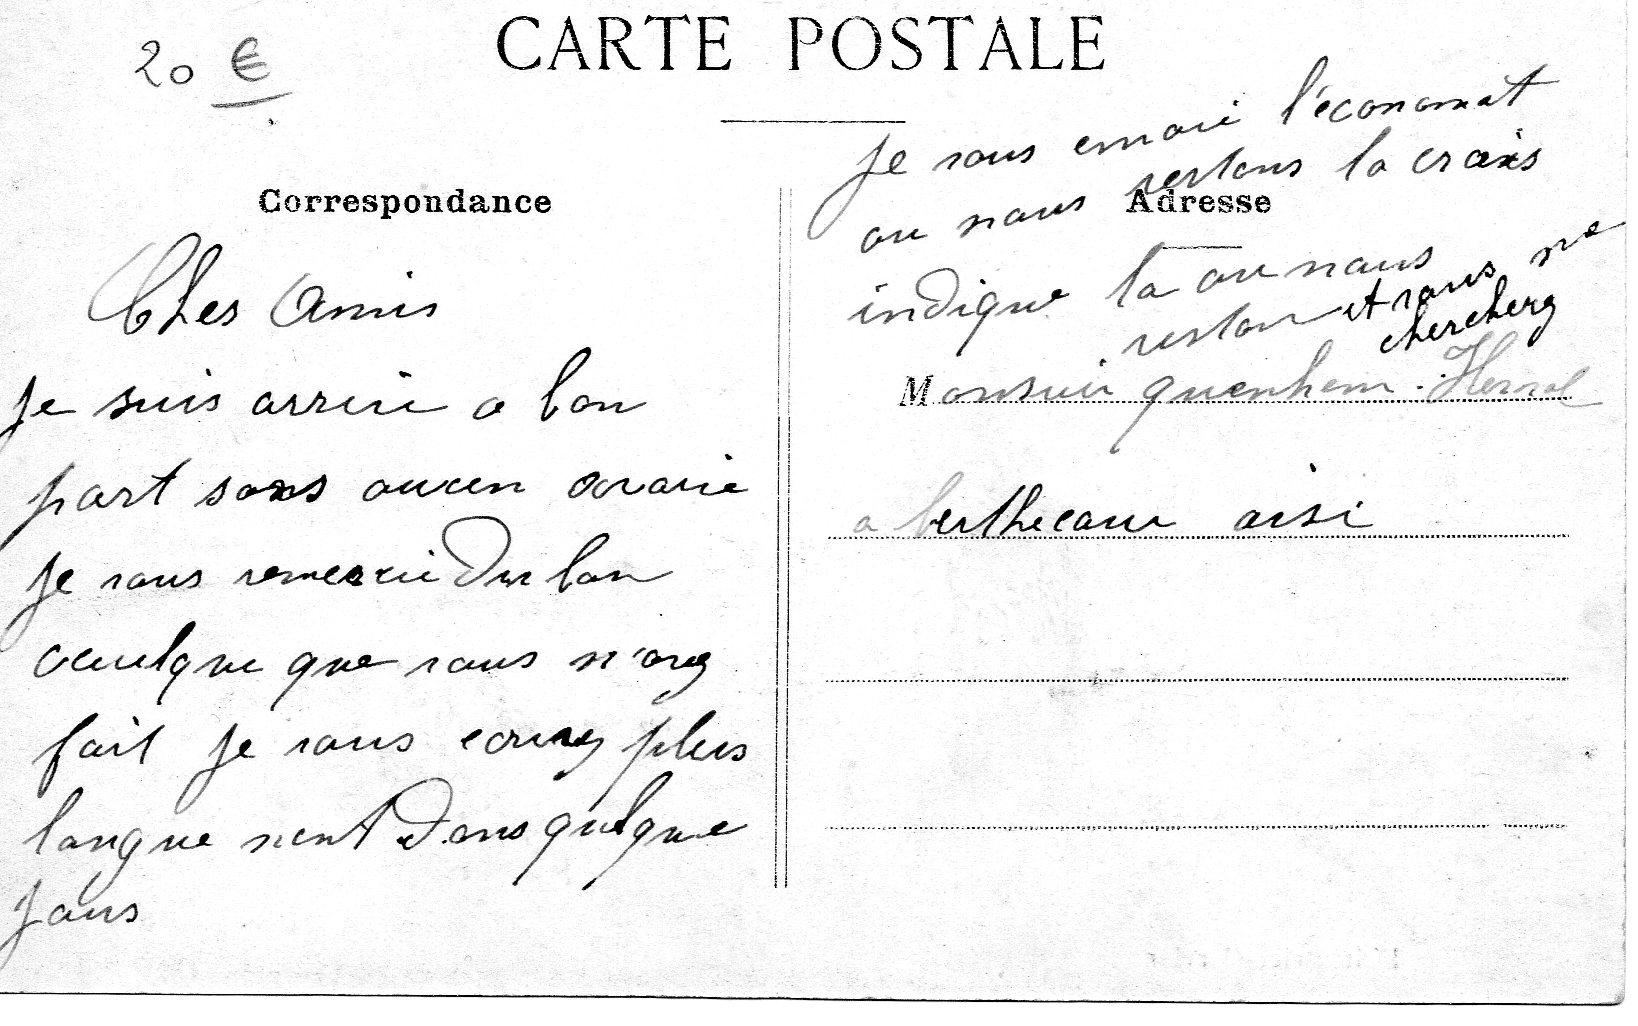 20 €
CARTE POSTALE
Correspondance
Ches Amis
Je suis arrivé a bon
part sans aucun avarie
Je vous remercie du bon
que vous m'avez
fait Je vous plus
longue ment dans quelque
Jours
Je vous envoie l'économat
ou nous restons la croix
Adresse
indique la ou nous
reston et vous me
chercherez
Monsuir quenhem
a berthecour oisi